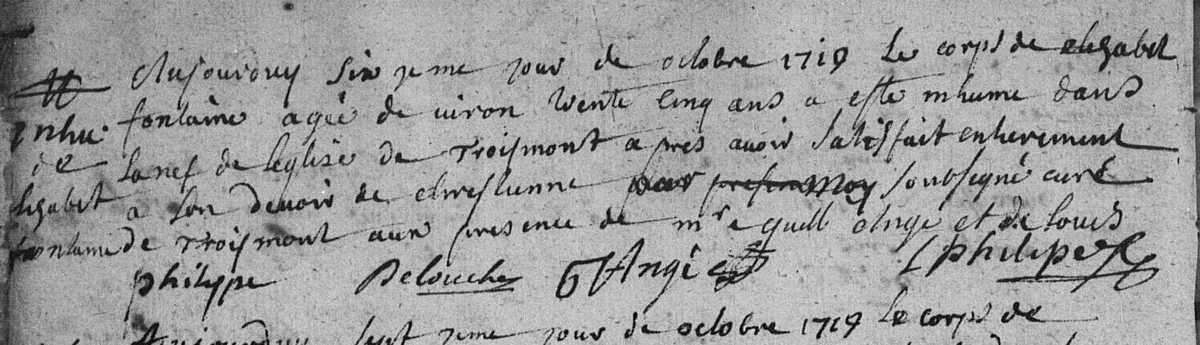 Aujourduy sixieme jour de octobre 1719 Le corps de elizabet
Inhu fontaine agée de viron trente Cinq ans a esté inhume dans
de La nef de Leglise de Troismont apres avoir Satisfait entierement
elizabet a Son devoir de chrestienne par moy soubsigné curé
fontaine de Troismont aux presence de mre Ange et de louis
philippe Delouche G Ange L philipe
Aujourduy Sept ieme jour de octobre 1719 Le corps de